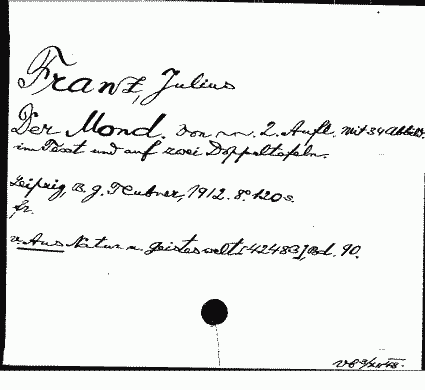 Franz, Julius
Der Mond. Von ~~. 2. Aufl. Mit 34 Abbild.
im Text und auf zwei Doppeltafeln.
Leipzig, B. G. Teubner, 1912. 8° 120 s.
fr.
v. Aus Natur u. Geisteswelt [42483] Bd. 90.